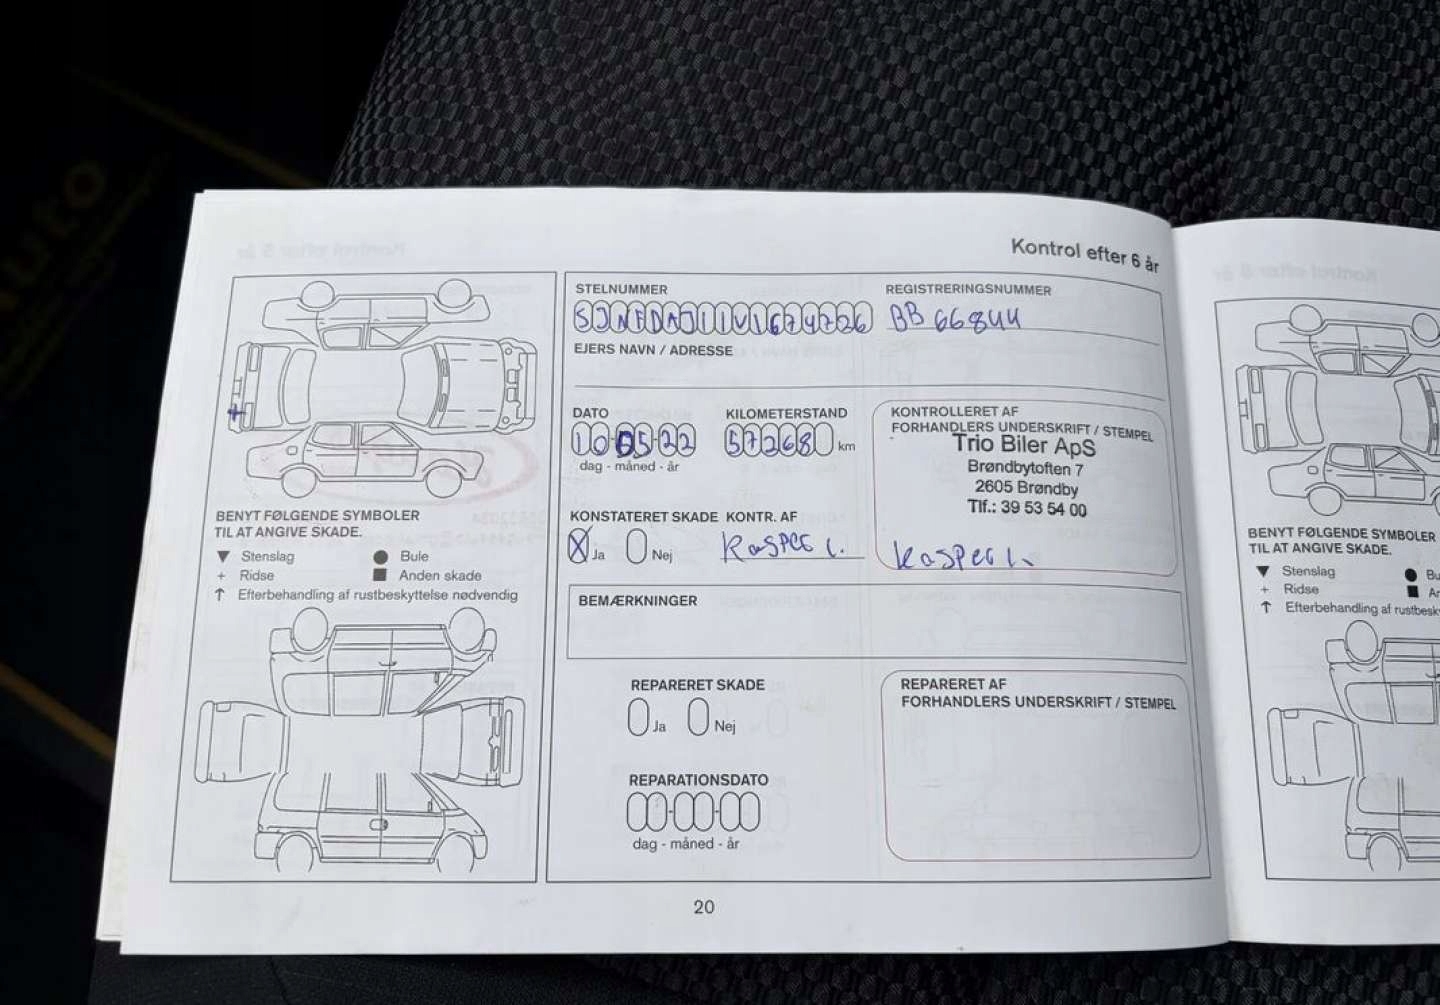 Kontrol efter 6 år
STELNUMMER
SJNFDAJ11U1674726
REGISTRERINGSNUMMER
BB 66844
EJERS NAVN / ADRESSE
DATO
10-05-22
dag - måned - år
KILOMETERSTAND
57268 km
KONTROLLERET AF
FORHANDLERS UNDERSKRIFT / STEMPEL
Trio Biler ApS
Brøndbytoften 7
2605 Brøndby
Tlf.: 39 53 54 00
Kasper L.
KONSTATERET SKADE
X Ja Nej
KONTR. AF
Kasper L.
BEMÆRKNINGER
REPARERET SKADE
Ja Nej
REPARATIONSDATO
dag - måned - år
REPARERET AF
FORHANDLERS UNDERSKRIFT / STEMPEL
BENYT FØLGENDE SYMBOLER
TIL AT ANGIVE SKADE.
▼ Stenslag
● Bule
+ Ridse
■ Anden skade
↑ Efterbehandling af rustbeskyttelse nødvendig
20
BENYT FØLGENDE SYMBOLER
TIL AT ANGIVE SKADE.
▼ Stenslag
● Bu
+ Ridse
■ An
↑ Efterbehandling af rustbesky
auto